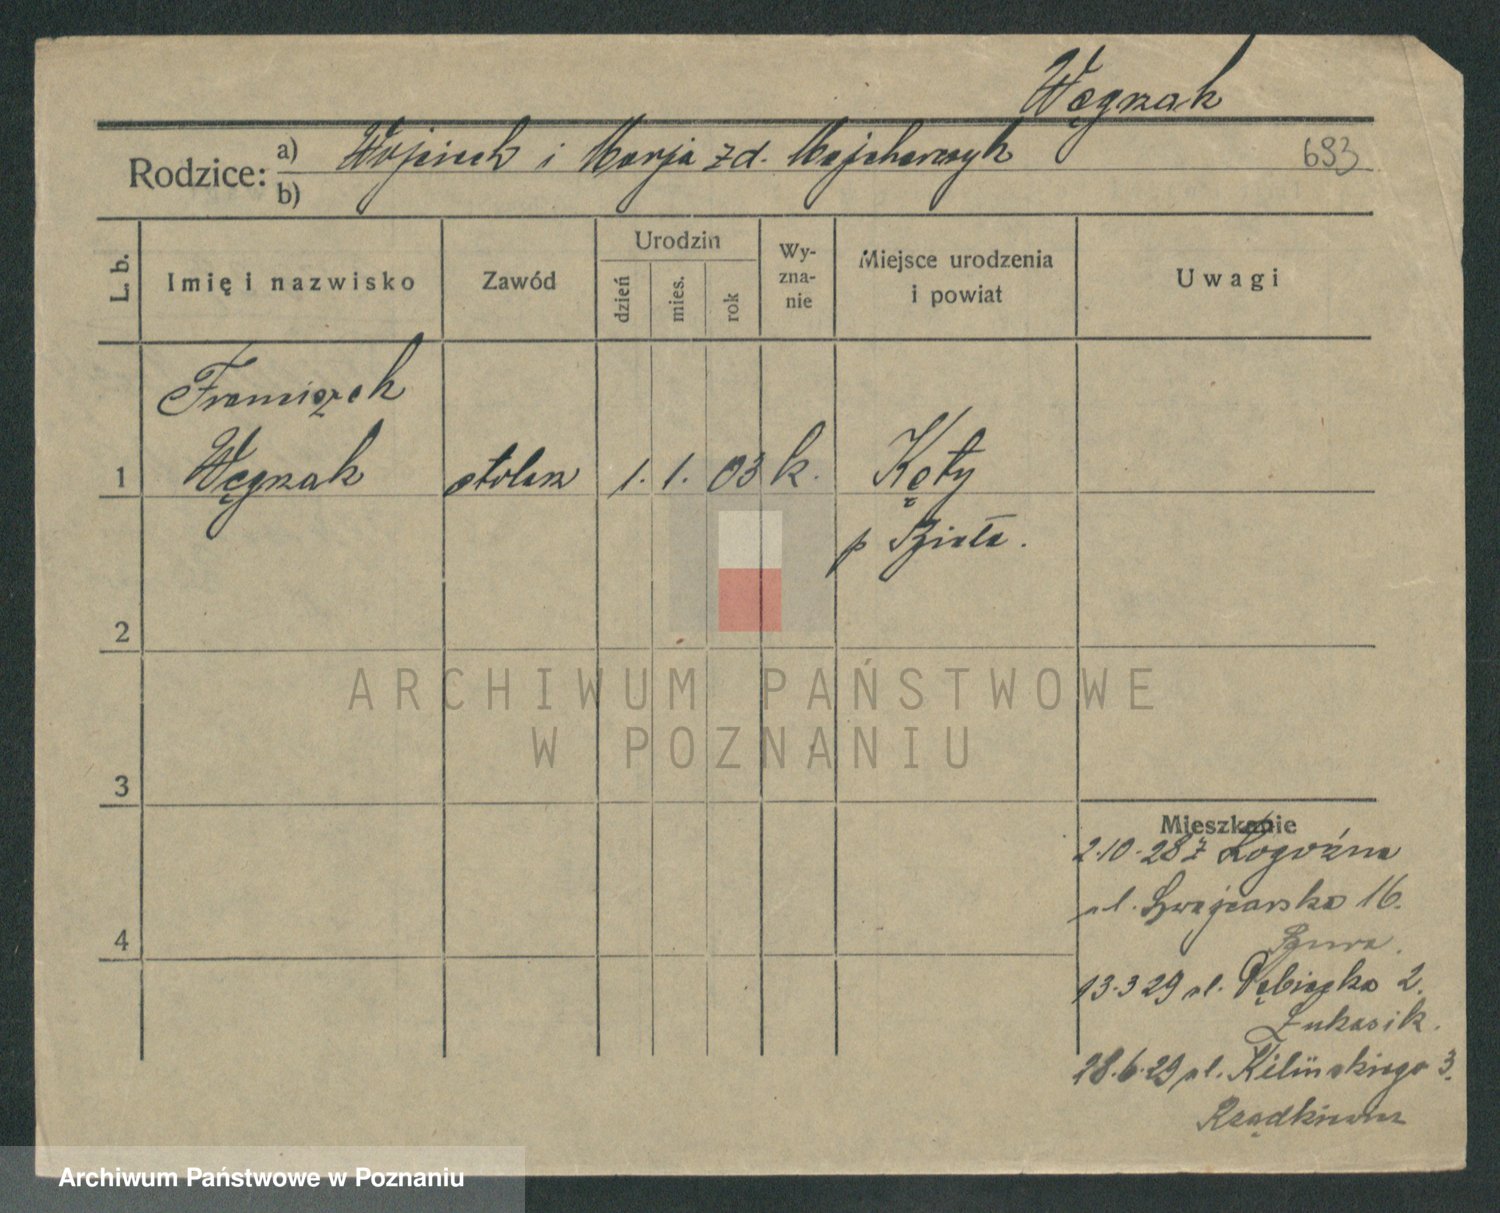 Węgrzak
Rodzice: a) Wojciech i Marja zd. Majcherczyk 693
b)
L. b. Imię i nazwisko Zawód Urodzin dzień mies. rok Wy-zna-nie Miejsce urodzenia i powiat Uwagi
Franciszek
1 Węgrzak stolarz 1. 1. 03 k. Kęty
p Biała.
2
ARCHIWUM PAŃSTWOWE
W POZNANIU
3
Mieszkanie
2.10.28 z Rogoźna
ul. Szwajcarska 16.
4
13.3 29 ul. Dębiecka 2.
Łukasik.
28.6.29 ul. Kilińskiego 3.
Archiwum Państwowe w Poznaniu